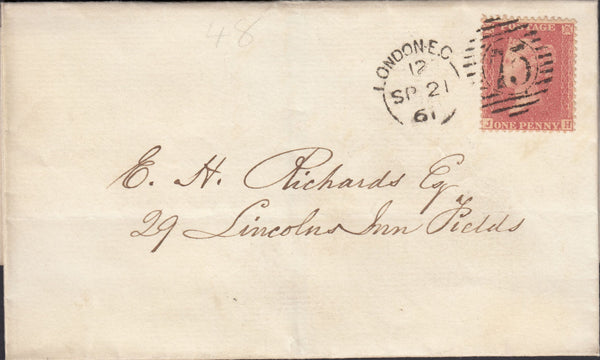 48
LONDON·E.C
12
SP 21
61
15
POSTAGE
J ONE PENNY H
E. H. Richards Esq
29 Lincolns Inn Fields